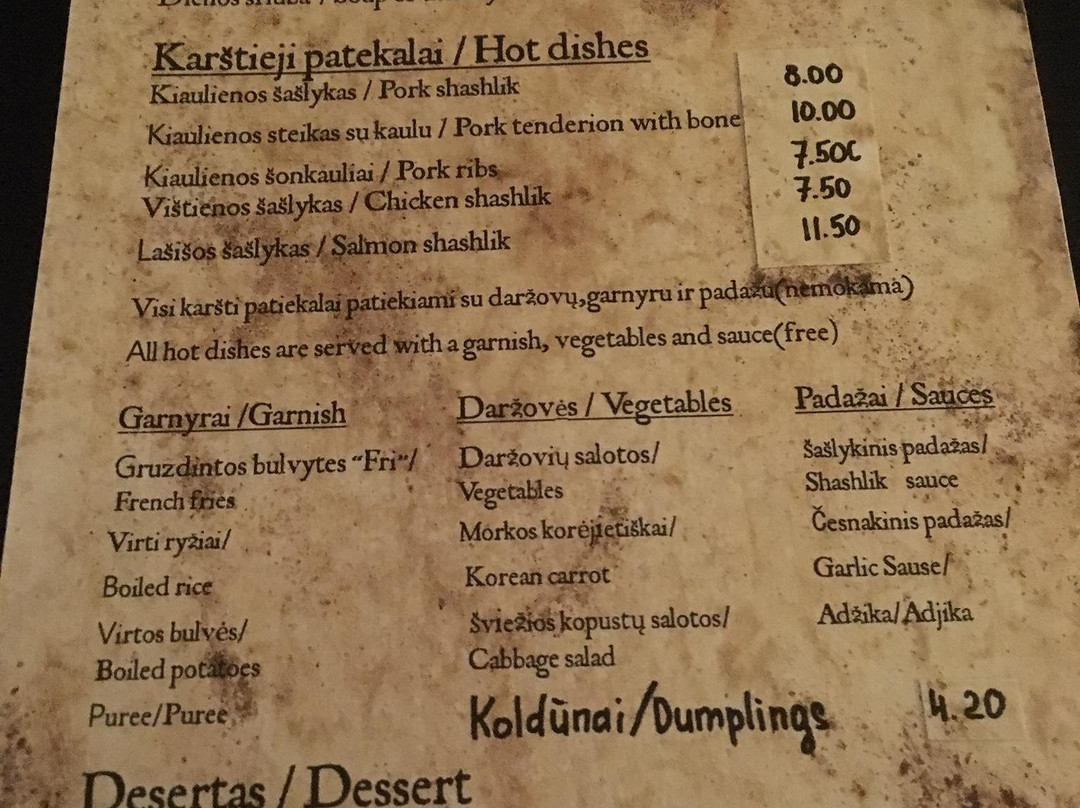 Dienos sriuba / Soup of
Karštieji patekalai / Hot dishes
Kiaulienos šašlykas / Pork shashlik 8.00
Kiaulienos steikas su kaulu / Pork tenderion with bone 10.00
Kiaulienos šonkauliai / Pork ribs 7.50€
Vištienos šašlykas / Chicken shashlik 7.50
Lašišos šašlykas / Salmon shashlik 11.50
Visi karšti patiekalai patiekiami su daržovų,garnyru ir padažu(nemokama)
All hot dishes are served with a garnish, vegetables and sauce(free)
Garnyrai /Garnish
Gruzdintos bulvytes “Fri”/
French fries
Virti ryžiai/
Boiled rice
Virtos bulvės/
Boiled potatoes
Puree/Puree
Daržovės / Vegetables
Daržovių salotos/
Vegetables
Morkos korėjietiškai/
Korean carrot
Šviežios kopustų salotos/
Cabbage salad
Padažai / Sauces
Šašlykinis padažas/
Shashlik sauce
Česnakinis padažas/
Garlic Sause/
Adžika/ Adjika
Koldūnai/Dumplings 4.20
Desertas / Dessert